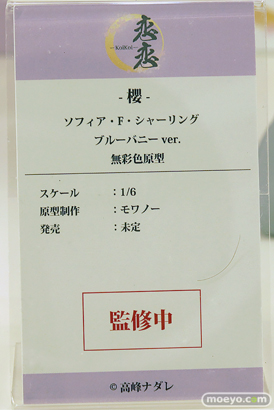 恋恋
KoiKoi
- 櫻 -
ソフィア・F・シャーリング
ブルーバニー ver.
無彩色原型
スケール ：1/6
原型制作 ：モワノー
発売 ：未定
監修中
© 高峰ナダレ
moeyo.com